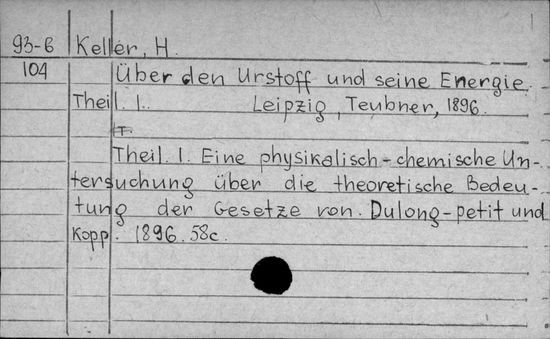 93-6 Keller, H.
104 Über den Urstoff und seine Energie.
Theil. 1. Leipzig, Teubner, 1896.
T.
Theil. 1. Eine physikalisch-chemische Un-
tersuchung über die theoretische Bedeu-
tung der Gesetze von. Dulong-petit und
Kopp. 1896. 58c.